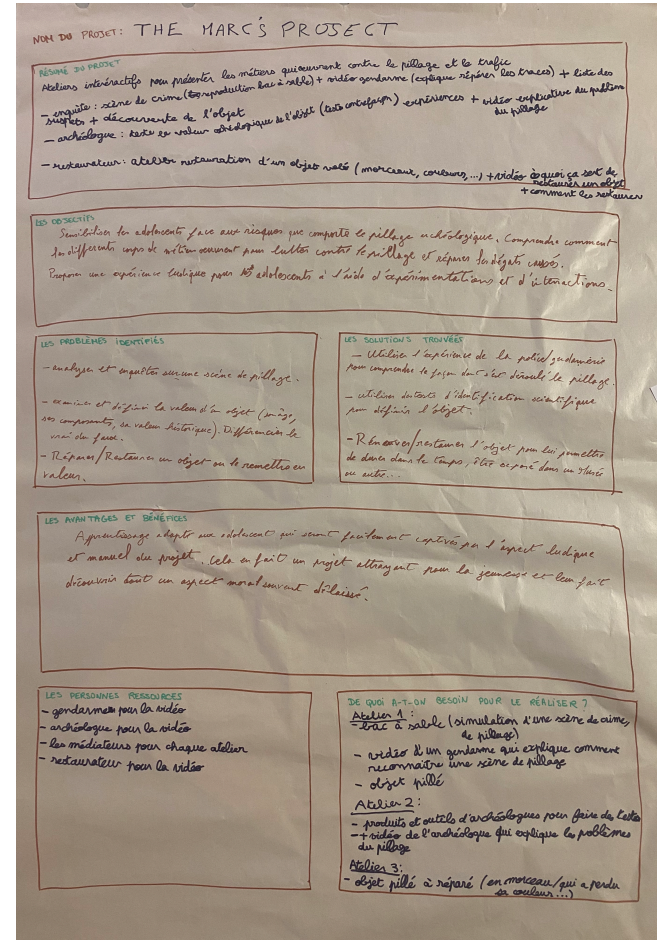 NOM DU PROJET: THE MARC'S PROJECT
RÉSUMÉ DU PROJET
Ateliers intéractifs pour présenter les métiers qui oeuvrent contre le pillage et le trafic
- enquête : scène de crime (reproduction bac à sable) + vidéo gendarme (explique répérer les traces) + liste des
suspets + découverte de l'objet
- archéologue : teste la valeur archéologique de l'objet (tests contrefaçon) expériences + vidéo explicative du problème
du pillage
- restaurateur : atelier restauration d'un objet volé (morceaux, couleurs, ...) + vidéo à quoi ça sert de
restaurer un objet
+ comment les restaurer
LES OBJECTIFS
Sensibiliser les adolescents face aux risques que comporte le pillage archéologique. Comprendre comment
les différents corps de métier oeuvrent pour lutter contre le pillage et réparer les dégats causés.
Proposer une expérience ludique pour les adolescents à l'aide d'expérimentations et d'interactions.
LES PROBLÈMES IDENTIFIÉS
- analyser et enquêter sur une scène de pillage.
- examiner et définir la valeur d'un objet (son âge,
ses composants, sa valeur historique). Différencier le
vrai du faux.
- Réparer/Restaurer un objet ou le remettre en
valeur.
LES SOLUTIONS TROUVÉES
- Utiliser l'expérience de la police/gendarmerie
pour comprendre la façon dont s'est déroulé le pillage.
- utiliser des tests d'identification scientifique
pour définir l'objet.
- Rénover/restaurer l'objet pour lui permettre
de durer dans le temps, être exposé dans un Musée
ou autre...
LES AVANTAGES ET BÉNÉFICES
Apprentissage adapté aux adolescent qui seront facilement captivés par l'aspect ludique
et manuel du projet. Cela en fait un projet attrayant pour la jeunesse et leur fait
découvrir tout un aspect moral souvent délaissé.
LES PERSONNES RESSOURCES
- gendarme pour la vidéo
- archéologue pour la vidéo
- les médiateurs pour chaque atelier
- restaurateur pour la vidéo
DE QUOI A-T-ON BESOIN POUR LE RÉALISER ?
Atelier 1 :
- bac à sable (simulation d'une scène de crime,
de pillage)
- vidéo d'un gendarme qui explique comment
reconnaître une scène de pillage
- objet pillé
Atelier 2 :
- produits et outils d'archéologues pour faire des tests
- + vidéo de l'archéologue qui explique les problèmes
du pillage
Atelier 3 :
- objet pillé à réparé (en morceau/qui a perdu
sa couleur...)